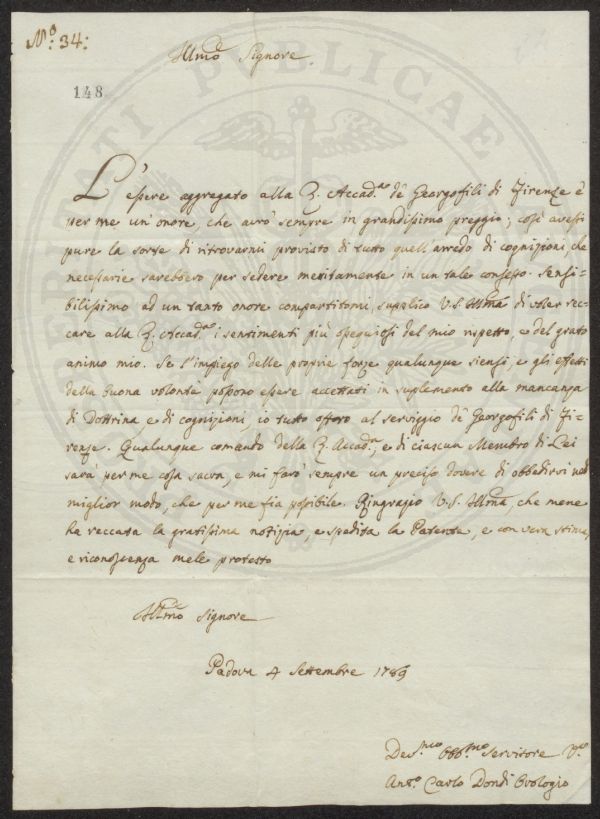 N.º 34:
Illmo Signore.
148
L'essere aggregato alla R. Accad.ª de' Georgofili di Firenze è
per me un'onore, che avrò sempre in grandissimo preggio; così avessi
pure la sorte di ritrovarmi provisto di tutto quell'arredo di cognizioni, che
necessarie sarebbero per sedere meritamente in un tale consesso. Sensi-
bilissimo ad un tanto onore compartitomi, supplico V.S. Illma di voler rec-
care alla R. Accad.ª i sentimenti più ossequiosi del mio rispetto, e del grato
animo mio. Se l'impiego delle proprie forze qualunque siensi, e gli effetti
della buona volontà possono essere accettati in suplemento alla mancanza
di Dottrina e di cognizioni, io tutto offoro al serviggio de' Georgofili di Fi-
renze. Qualunque comando della R. Accad.ª, e di ciascun Membro di Lei
sarà per me cosa sacra, e mi farò sempre un preciso dovere di obbedirvi nel
miglior modo, che per me sia possibile. Ringrazio V.S. Illma, che mene
ha reccata la gratissima notizia e spedita la Patente, e con vera stima,
e riconoscenza mele protesto
Illmo Signore
Padova 4 Settembre 1789
Dev.mo Obb.mo Servitore V.ro
Ant.º Carlo Dondi Orologio
PUBLICAE